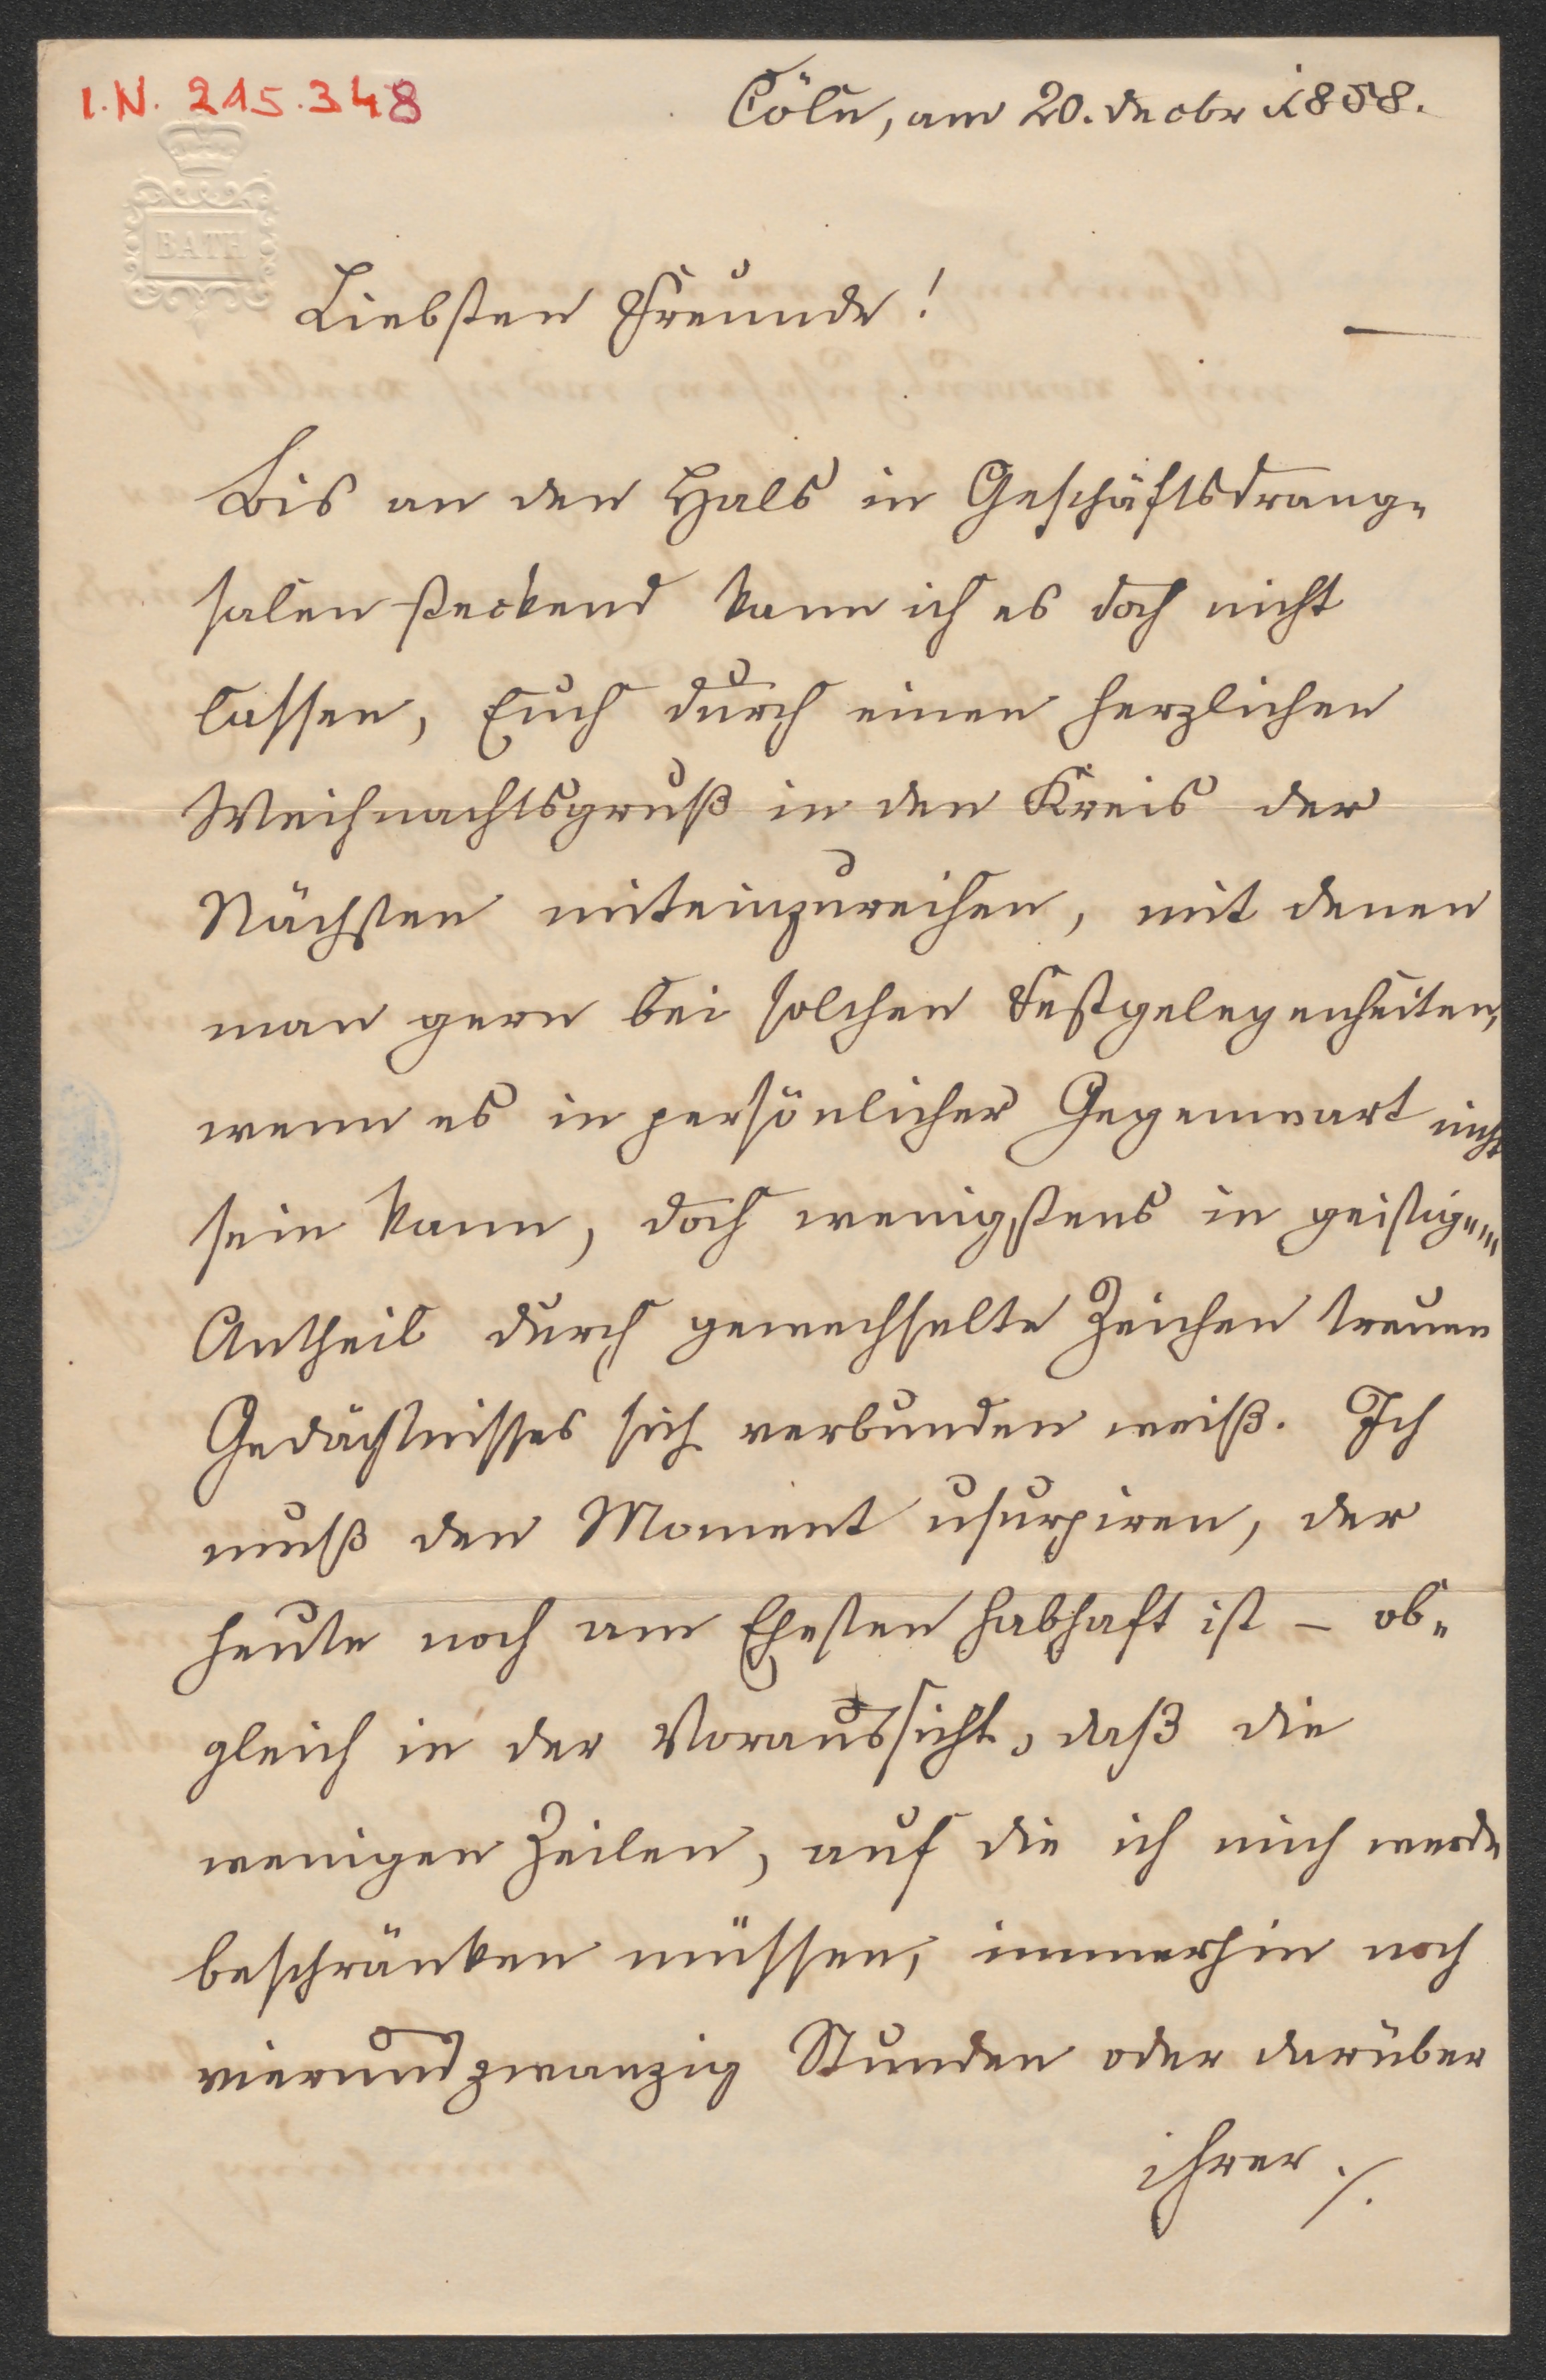 I.N. 215.348
Cöln, am 20. Decbr 1858.
BATH
Liebsten Freunde!
Bis an den Hals in Geschäftsdrang-
salen steckend kann ich es doch nicht
lassen, Euch durch einen herzlichen
Weihnachtsgruß in den Kreis der
Nächsten miteinzureihen, mit denen
man gern bei solchen Festgelegenheiten,
wenn es in persönlicher Gegenwart nicht
sein kann, doch wenigstens in geistigem
Antheil durch gewechselte Zeichen treuen
Gedächtnisses sich verbunden weiß. Ich
muß den Moment usurpiren, der
heute noch am Ehesten habhaft ist – ob-
gleich in der Voraussicht, daß die
wenigen Zeilen, auf die ich mich werde
beschränken müssen, immerhin noch
vierundzwanzig Stunden oder darüber
ihrer ./.